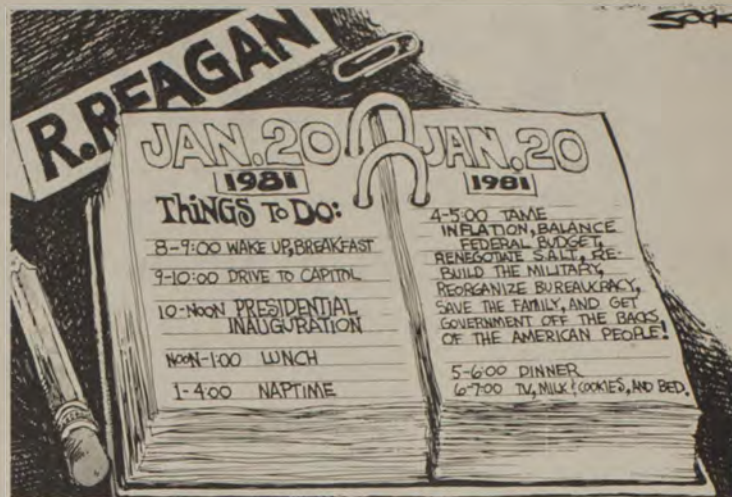 R. REAGAN
JAN. 20
1981
THINGS TO DO:
8-9:00 WAKE UP, BREAKFAST
9-10:00 DRIVE TO CAPITOL
10-NOON PRESIDENTIAL
INAUGURATION
NOON-1:00 LUNCH
1-4:00 NAPTIME
JAN. 20
1981
4-5:00 TAME
INFLATION, BALANCE
FEDERAL BUDGET,
RENEGOTIATE S.A.L.T., RE-
BUILD THE MILITARY,
REORGANIZE BUREAUCRACY,
SAVE THE FAMILY, AND GET
GOVERNMENT OFF THE BACKS
OF THE AMERICAN PEOPLE!
5-6:00 DINNER
6-7:00 TV, MILK & COOKIES, AND BED.